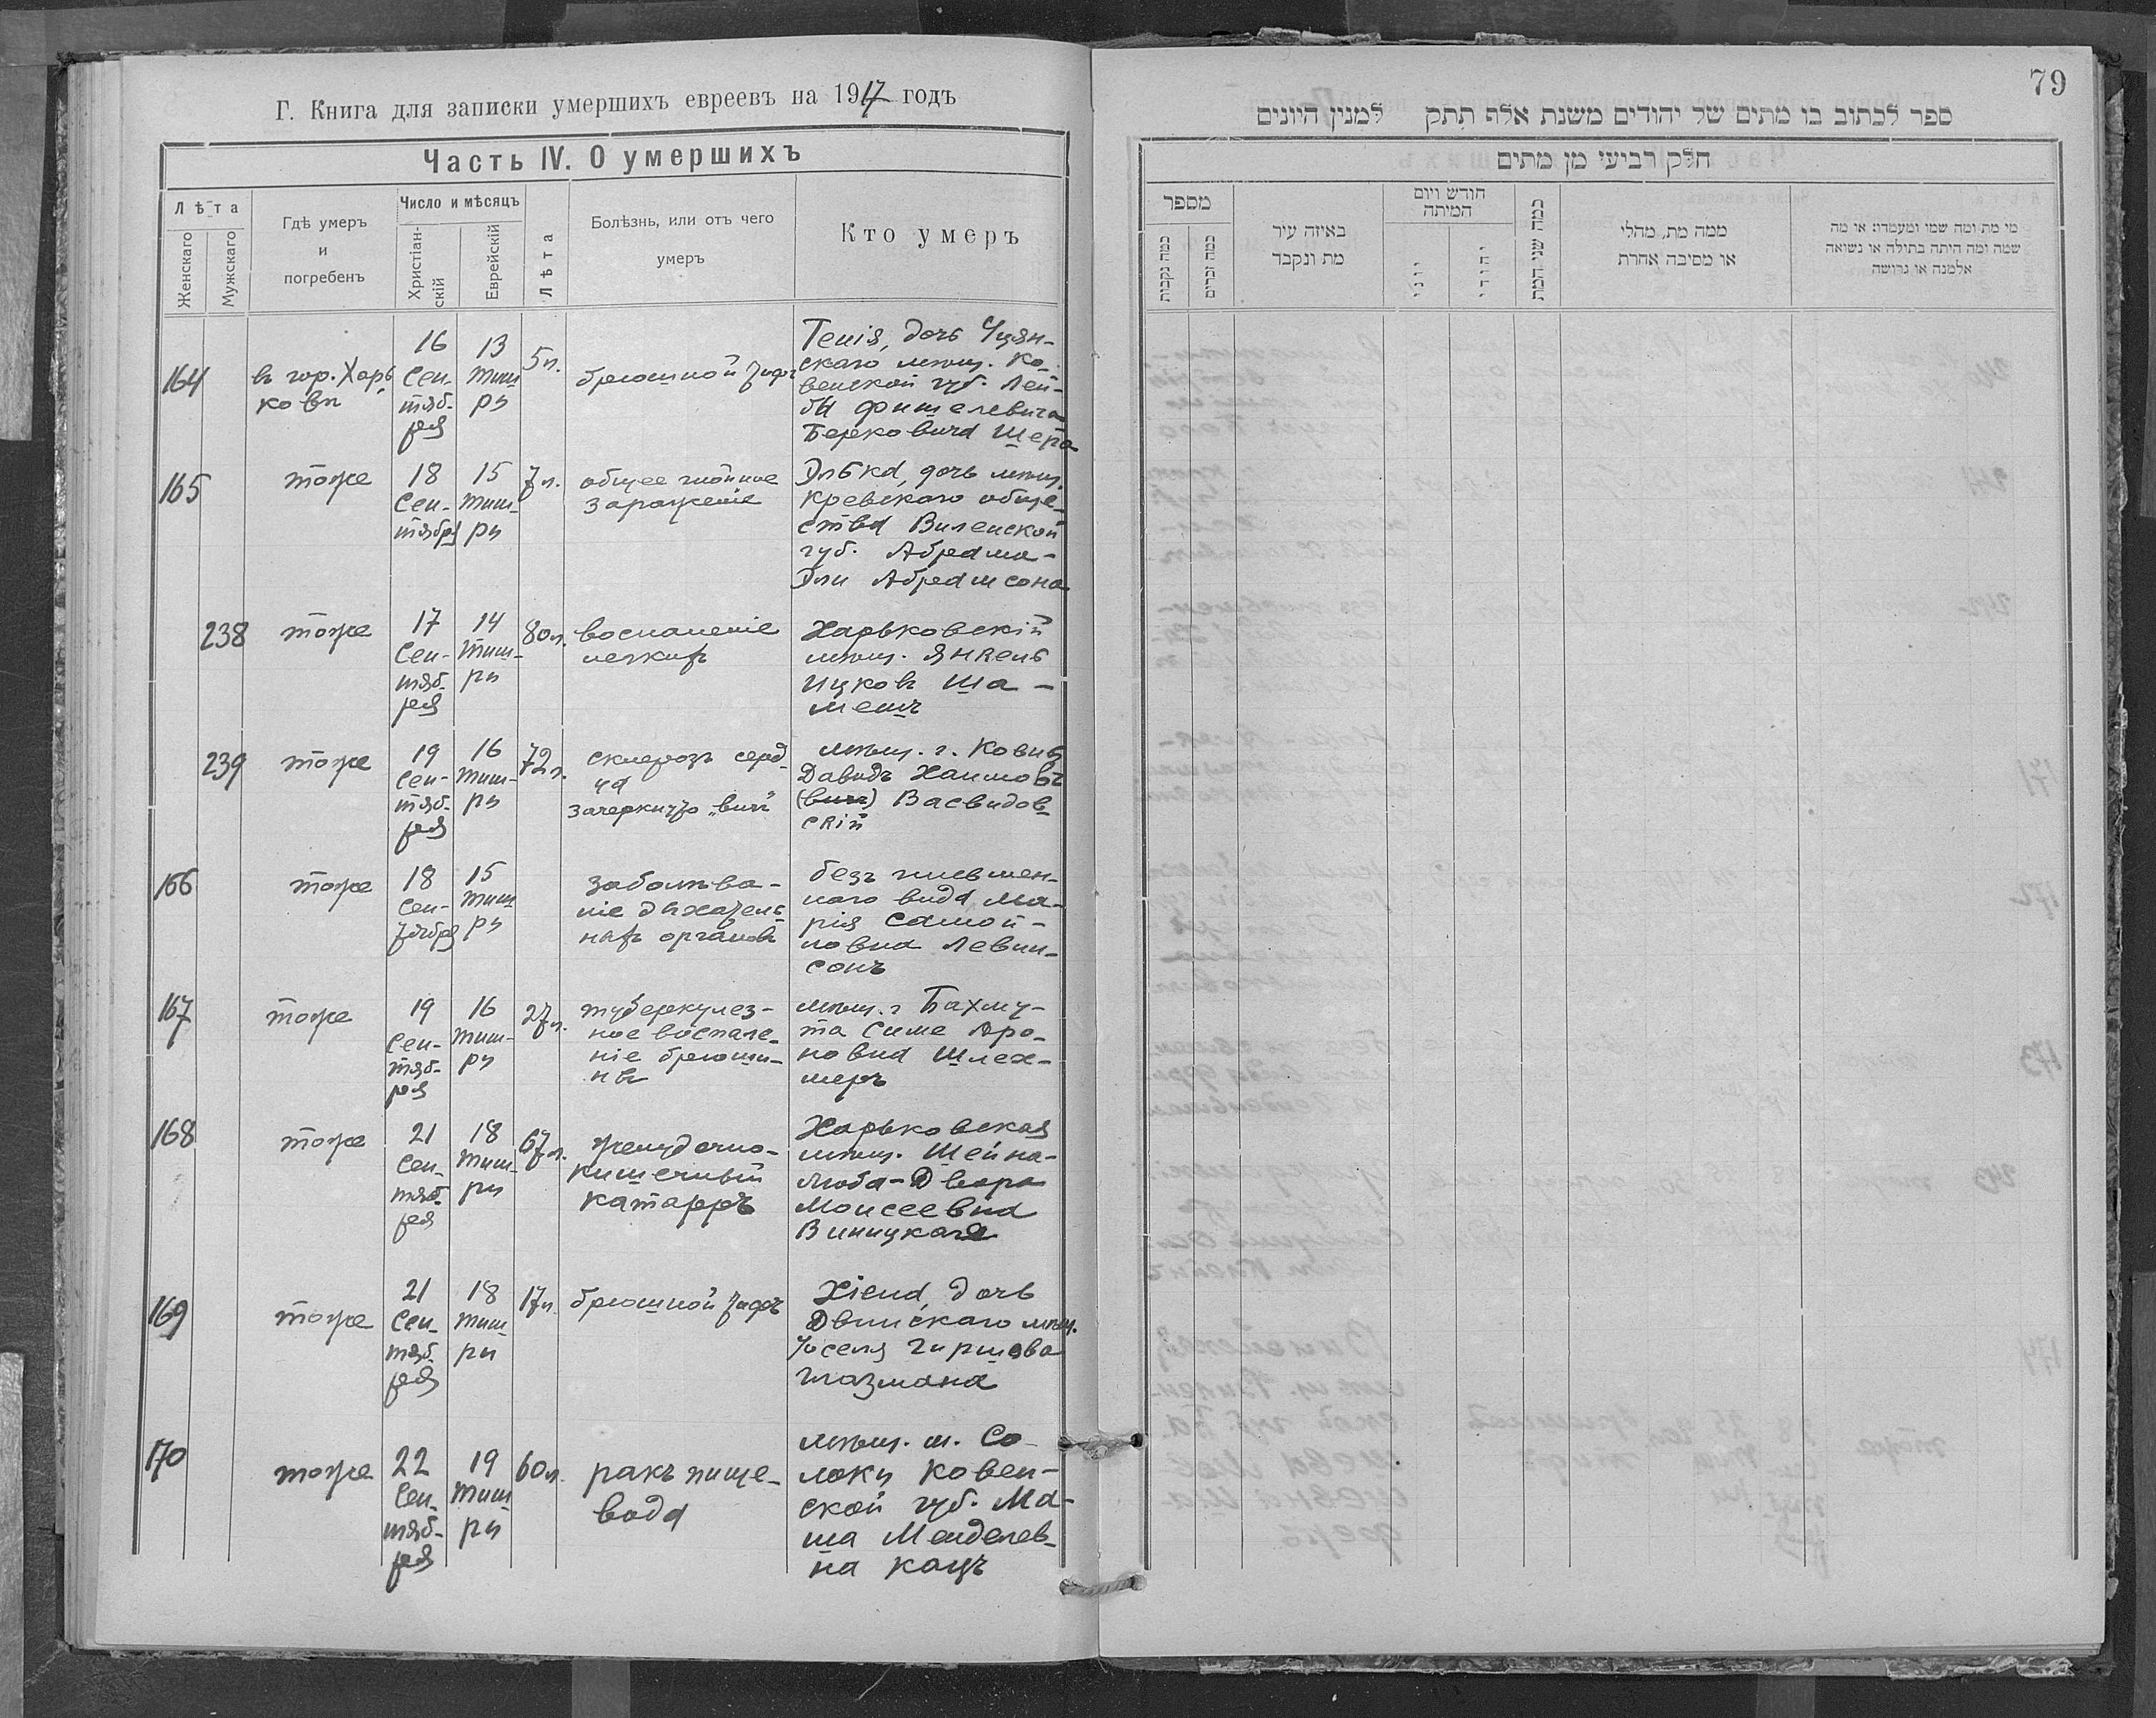 Г. Книга для записки умершихъ евреевъ на 1917 годъ
Часть IV. О умершихъ
Лѣта
Женскаго
Мужскаго
Гдѣ умеръ
и
погребенъ
Число и мѣсяцъ
Христіан-
скій
Еврейскій
Лѣта
Болѣзнь, или отъ чего
умеръ
Кто умеръ
164
въ гор. Харь
ковѣ
16
Сен-
тяб-
ря
13
Тиш
ри
5 л.
брюшной тифъ
Генія, дочь Уцян-
скаго мѣщ. Ко-
венской губ. Лей-
бы Фишелевича
Берковича Шера
165
тоже
18
Сен-
тября
15
Тиш-
ри
7 л.
общее гнойное
зараженіе
Элька, дочь мѣщ.
Кревскаго обще-
ства Виленской
губ. Абрама-
Эли Абрамсона
238
тоже
17
Сен-
тяб-
ря
14
Тиш-
ри
80 л.
воспаленіе
легкихъ
Харьковскій
мѣщ. Янкель
Ицковъ Ша-
мешъ
239
тоже
19
Сен-
тяб-
ря
16
Тиш-
ри
72 л.
склерозъ серд-
ца
зачеркнуто „вич"
мѣщ. г. Ковны
Давидъ Хаимовъ
(вич) Васвидов-
скій
166
тоже
18
Сен-
тября
15
Тиш
ри
заболѣва-
ніе дыхатель-
ныхъ органовъ
безъ письмен-
наго вида Ма-
рія Самой-
ловна Левин-
сонъ
167
тоже
19
Сен-
тяб-
ря
16
Тиш-
ри
27 л.
туберкулез-
ное воспале-
ніе брюши-
ны
мѣщ. г. Бахму-
та Симе Аро-
новна Шлех-
теръ
168
тоже
21
Сен-
тяб-
ря
18
Тиш-
ри
67 л.
желудочно-
кишечный
катарръ
Харьковская
мѣщ. Шейна-
Люба-Двора
Моисеевна
Виницкая
169
тоже
21
Сен-
тяб-
ря
18
Тиш-
ри
17 л.
брюшной тифъ
Хіена, дочь
Двинскаго мѣщ.
Іоселя Гиршова
Глазмана
170
тоже
22
Сен-
тяб-
ря
19
Тиш-
ри
60 л.
ракъ пище-
вода
мѣщ. м. Со-
локи Ковен-
ской губ. Ма-
ша Менделев-
на Кацъ
79
ספר לכתוב בו מתים של יהודים משנת אלף תתק למנין היונים
חלק רביעי מן מתים
מספר
כמה נקבות
כמה זכרים
באיזה עיר
מת ונקבר
חודש ויום
המיתה
יוני
יהודי
כמה שני המת
ממה מת, מחלי
או מסיבה אחרת
מי מת ומה שמו ומעמדו: או מה
שמה ומה היתה בתולה או נשואה
אלמנה או גרושה